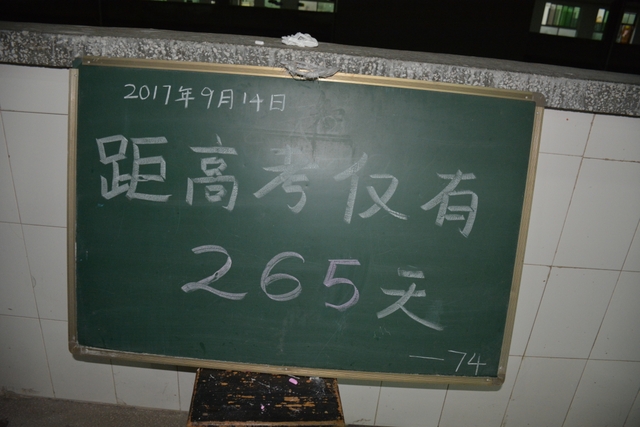 2017年9月14日
距高考仅有
265天
—74